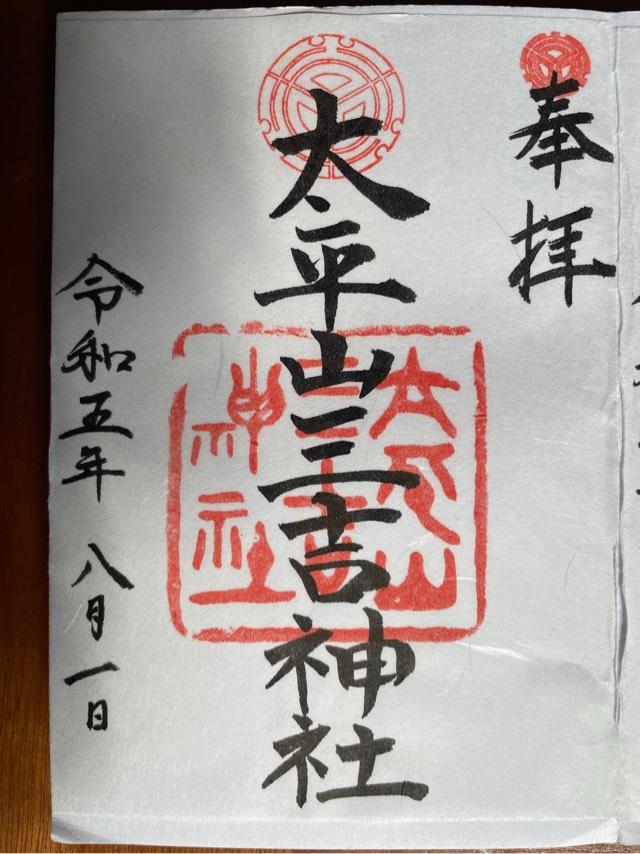 奉拝
太平山三吉神社
太平山
三吉
神社
令和五年 八月一日